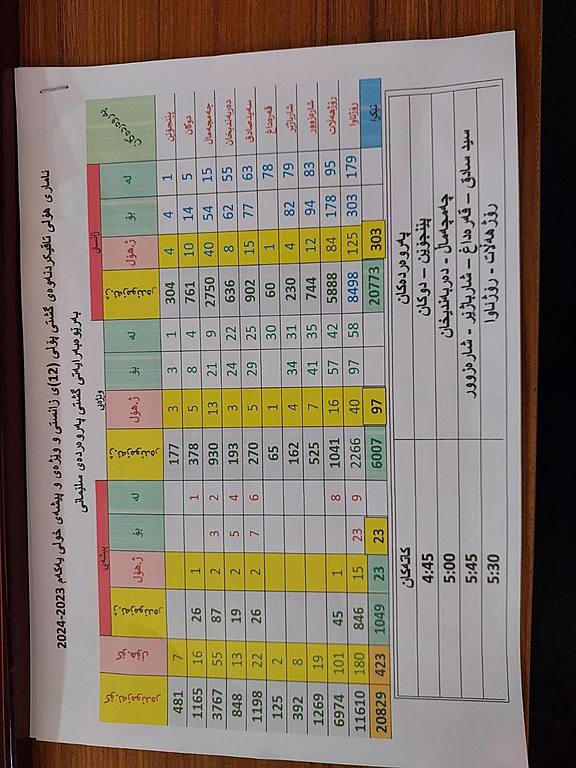 ئاماری هۆڵی تاقیکردنەوەی گشتی پۆلی (12)ی زانستی و وێژەی و پیشەی خولی یەکەم 2023-2024
بەڕێوەبەرایەتی گشتی پەروەردەی سلێمانی
پەروەردەکان زانستی وێژەیی پیشەیی کۆ.هۆڵ کۆ.ئەزموندەر
لە بۆ ژ.هۆڵ ژ.ئەزموندەر لە بۆ ژ.هۆڵ ژ.ئەزموندەر لە بۆ ژ.هۆڵ ژ.ئەزموندەر
پێنجوێن 1 4 4 304 1 3 3 177 7 481
دوکان 5 14 10 761 4 8 5 378 1 1 26 16 1165
چەمچەماڵ 15 54 40 2750 9 21 13 930 2 3 2 87 55 3767
دەربەندیخان 55 62 8 636 22 24 3 193 4 5 2 19 13 848
سەیدصادق 63 77 15 902 25 29 5 270 6 7 2 26 22 1198
قەرەداغ 78 1 60 30 1 65 2 125
شارباژێڕ 79 82 4 230 31 34 4 162 8 392
شارەزوور 83 94 12 744 35 41 7 525 19 1269
رۆژهەڵات 95 178 84 5888 42 57 16 1041 8 1 45 101 6974
رۆژئاوا 179 303 125 8498 58 97 40 2266 9 23 15 846 180 11610
تێکڕا 303 20773 97 6007 23 23 1049 423 20829
پەروەردەکان کاتەکان
پێنجوێن – دوکان 4:45
چەمچەماڵ - دەربەندیخان 5:00
سید سادق – قەرەداغ – شارباژێڕ - شارەزوور 5:45
رۆژهەڵات - رۆژئاوا 5:30